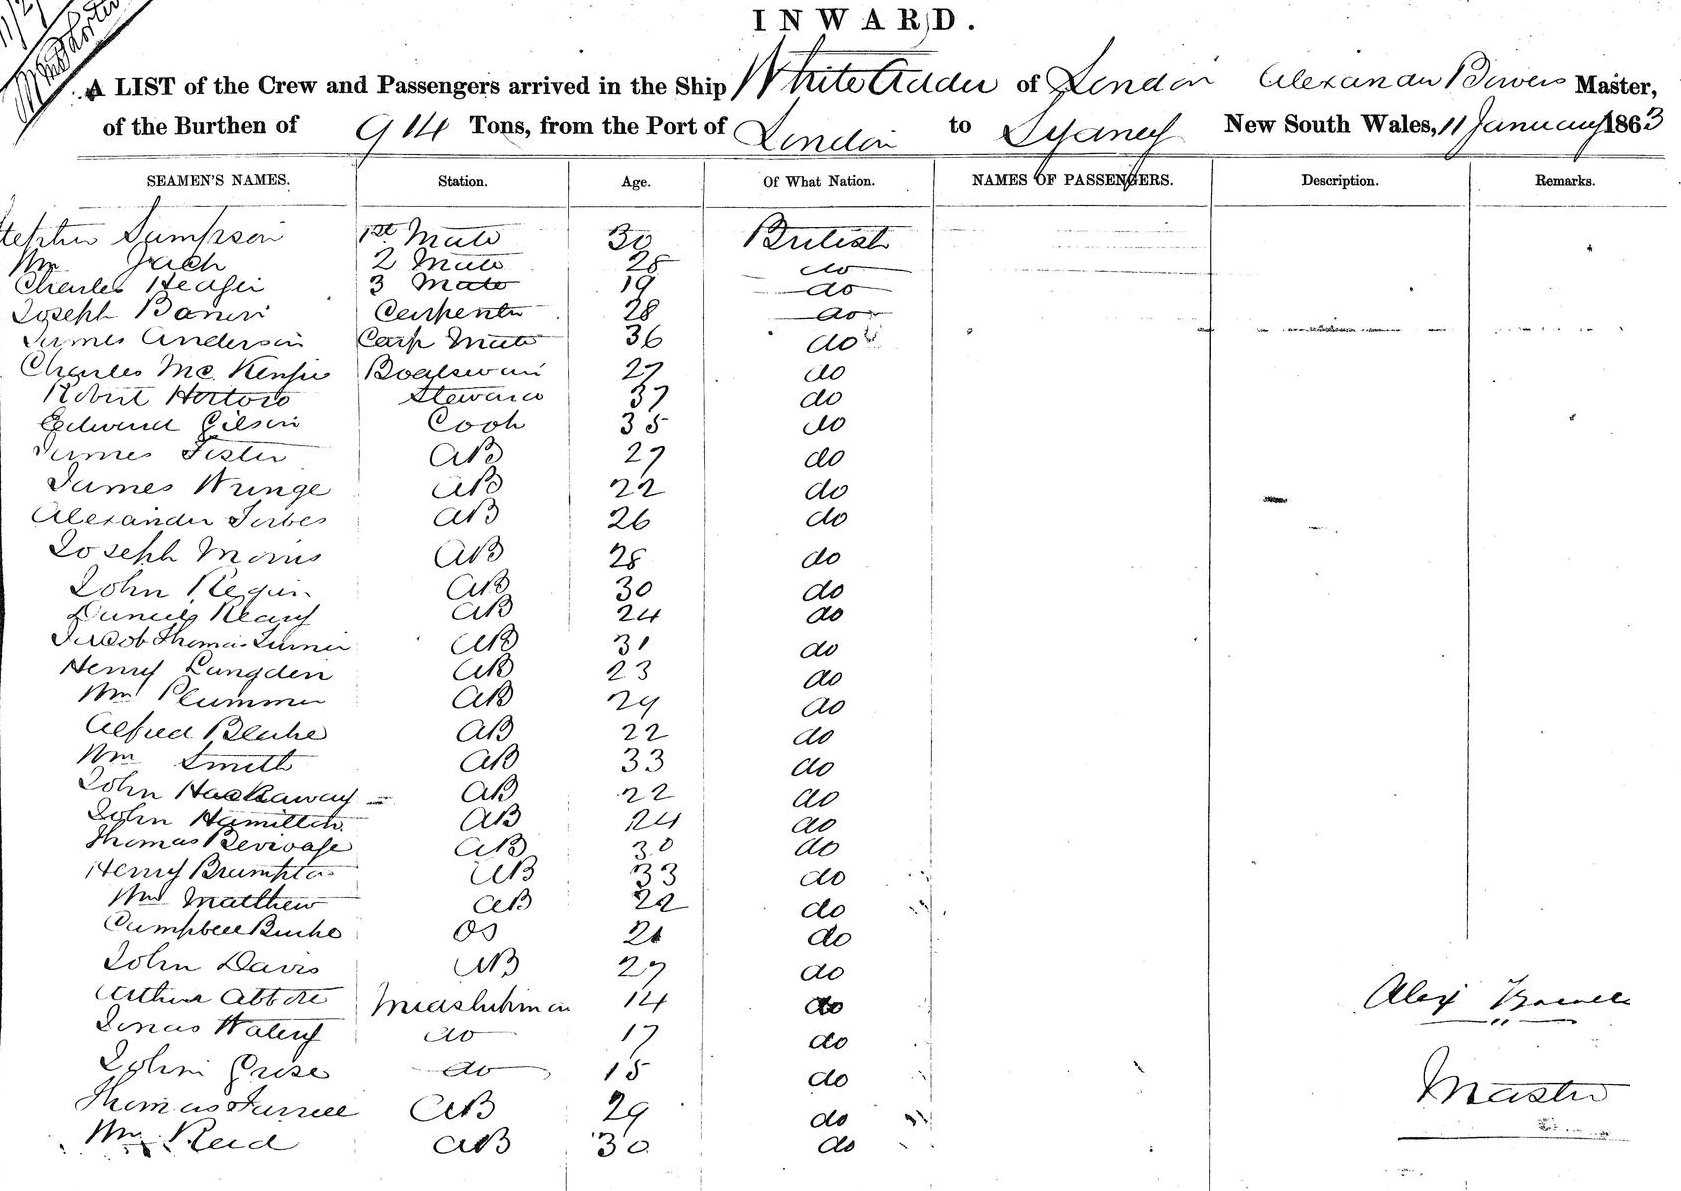 INWARD.
A LIST of the Crew and Passengers arrived in the Ship White Adder of London Alexander Bowers Master,
of the Burthen of 914 Tons, from the Port of London to Sydney New South Wales, 11 January 1863
SEAMEN'S NAMES. Station. Age. Of What Nation. NAMES OF PASSENGERS. Description. Remarks.
Stephen Sampson 1st Mate 30 British
Wm Jach 2 Mate 28 do
Charles 3 Mate 19 do
Joseph Carpenter 28 do
James Anderson Carp Mate 36 do
Charles McKenzie Boatswain 27 do
Robert Steward 37 do
Edward Gilson Cook 35 do
James Fister AB 27 do
James Wringe AB 22 do
Alexander Forbes AB 26 do
Joseph Morris AB 28 do
John Regin AB 30 do
Daniel Keary AB 24 do
Jacob Thomas Turner AB 31 do
Henry Langdon AB 23 do
Wm Plummer AB 29 do
Alfred Blake AB 22 do
Wm Smith AB 33 do
John Hackaway AB 22 do
John Hamilton AB 24 do
Thomas AB 30 do
Henry Brumpton AB 33 do
Wm Matthew AB 22 do
Campbell Burke OS 21 do
John Davis AB 27 do
Arthur Abbott Midshipman 14 do
Alex Bowers
Jonas do 17 do
John Grose do 15 do
Master
Thomas Farrell AB 29 do
Wm Reid AB 30 do